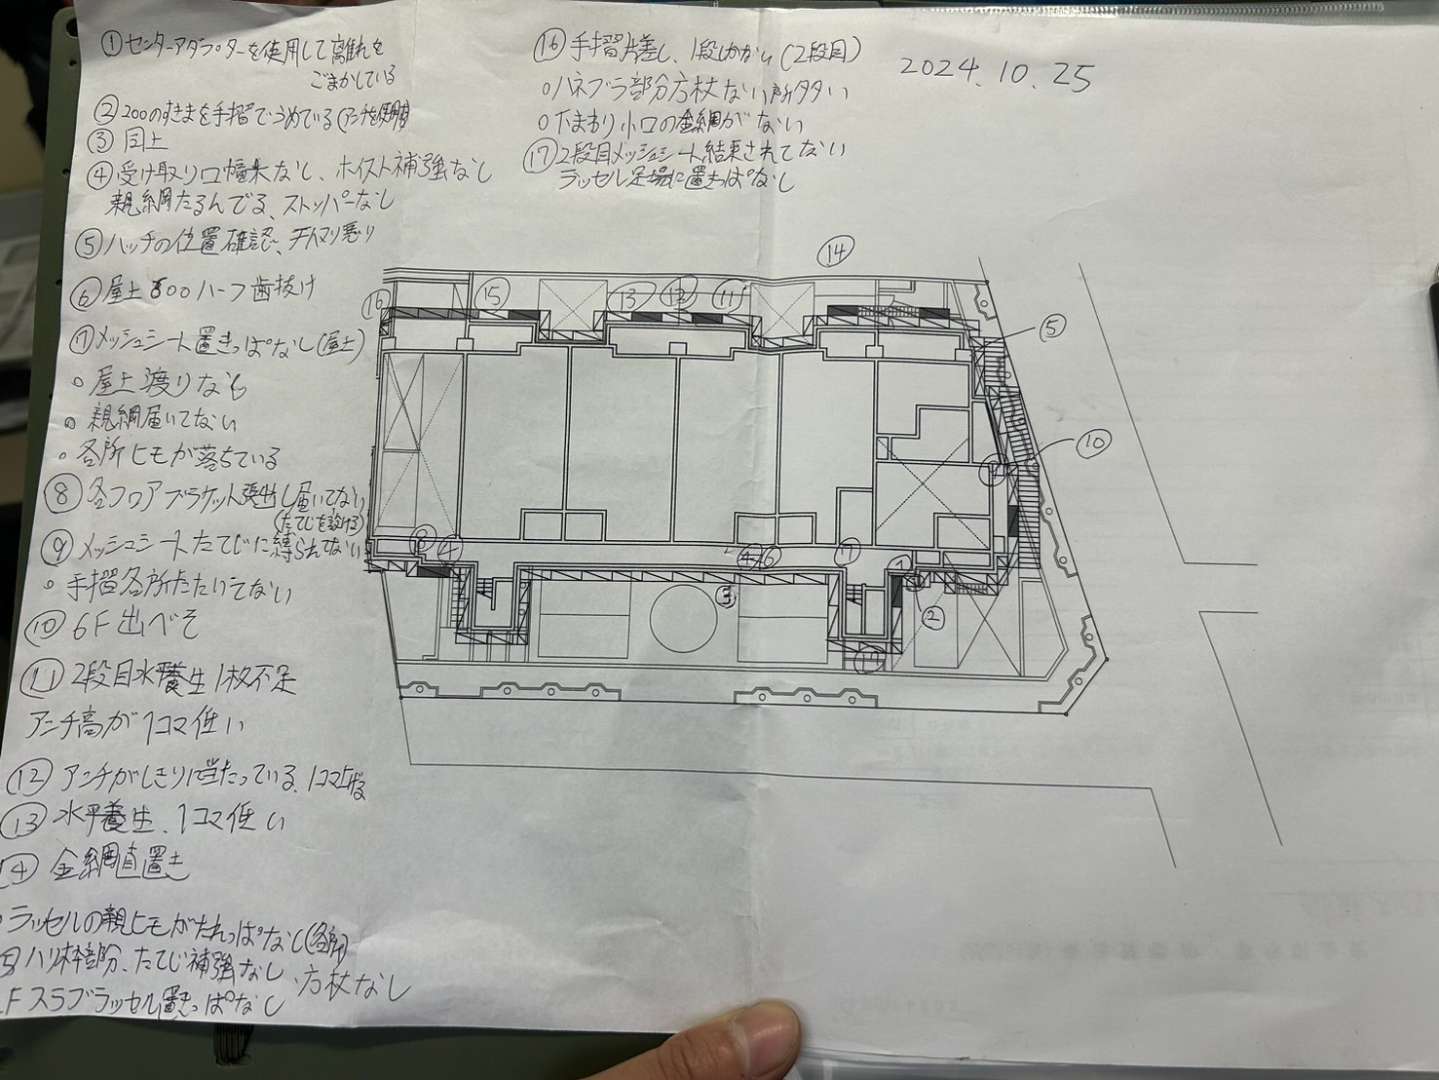 ① センターアダプターを使用して離れを
ごまかしている
② 200のすきまを手摺でうめている(アンチを使用)
③ 同上
④ 受け取り口幅木なし、ホイスト補強なし
親綱たるんでる、ストッパーなし
⑤ ハッチの位置確認、
⑥ 屋上 500ハーフ歯抜け
⑦ メッシュシート置きっぱなし(屋上)
○ 屋上渡りなし
○ 親綱届いてない
○ 各所ヒモが落ちている
⑧ 各フロアブラケット張出し届いてない
(たてじを設ける)
⑨ メッシュシートたてじに縛られてない
○ 手摺各所たたいてない
⑩ 6F 出べそ
⑪ 2段目水平養生1枚不足
アンチ高が1コマ低い
⑫ アンチがしきりに当たっている、1コマ上げる
⑬ 水平養生、1コマ低い
⑭ 金網直置き
○ラッセルの親ヒモがたれっぱなし(各所)
ハリ枠部分、たてじ補強なし、方杖なし
Fスラブラッセル置きっぱなし
⑯ 手摺片差し、1段しかない(2段目)
○ハネブラ部分方杖ない所多い
○下まわり小口の金網がない
⑰ 2段目メッシュシート結束されてない
ラッセル足場に置きっぱなし
2024.10.25
⑭
⑯
⑮
⑬
⑫
⑪
⑤
⑩
⑧
④
④
⑥
⑦
①
③
②
⑰